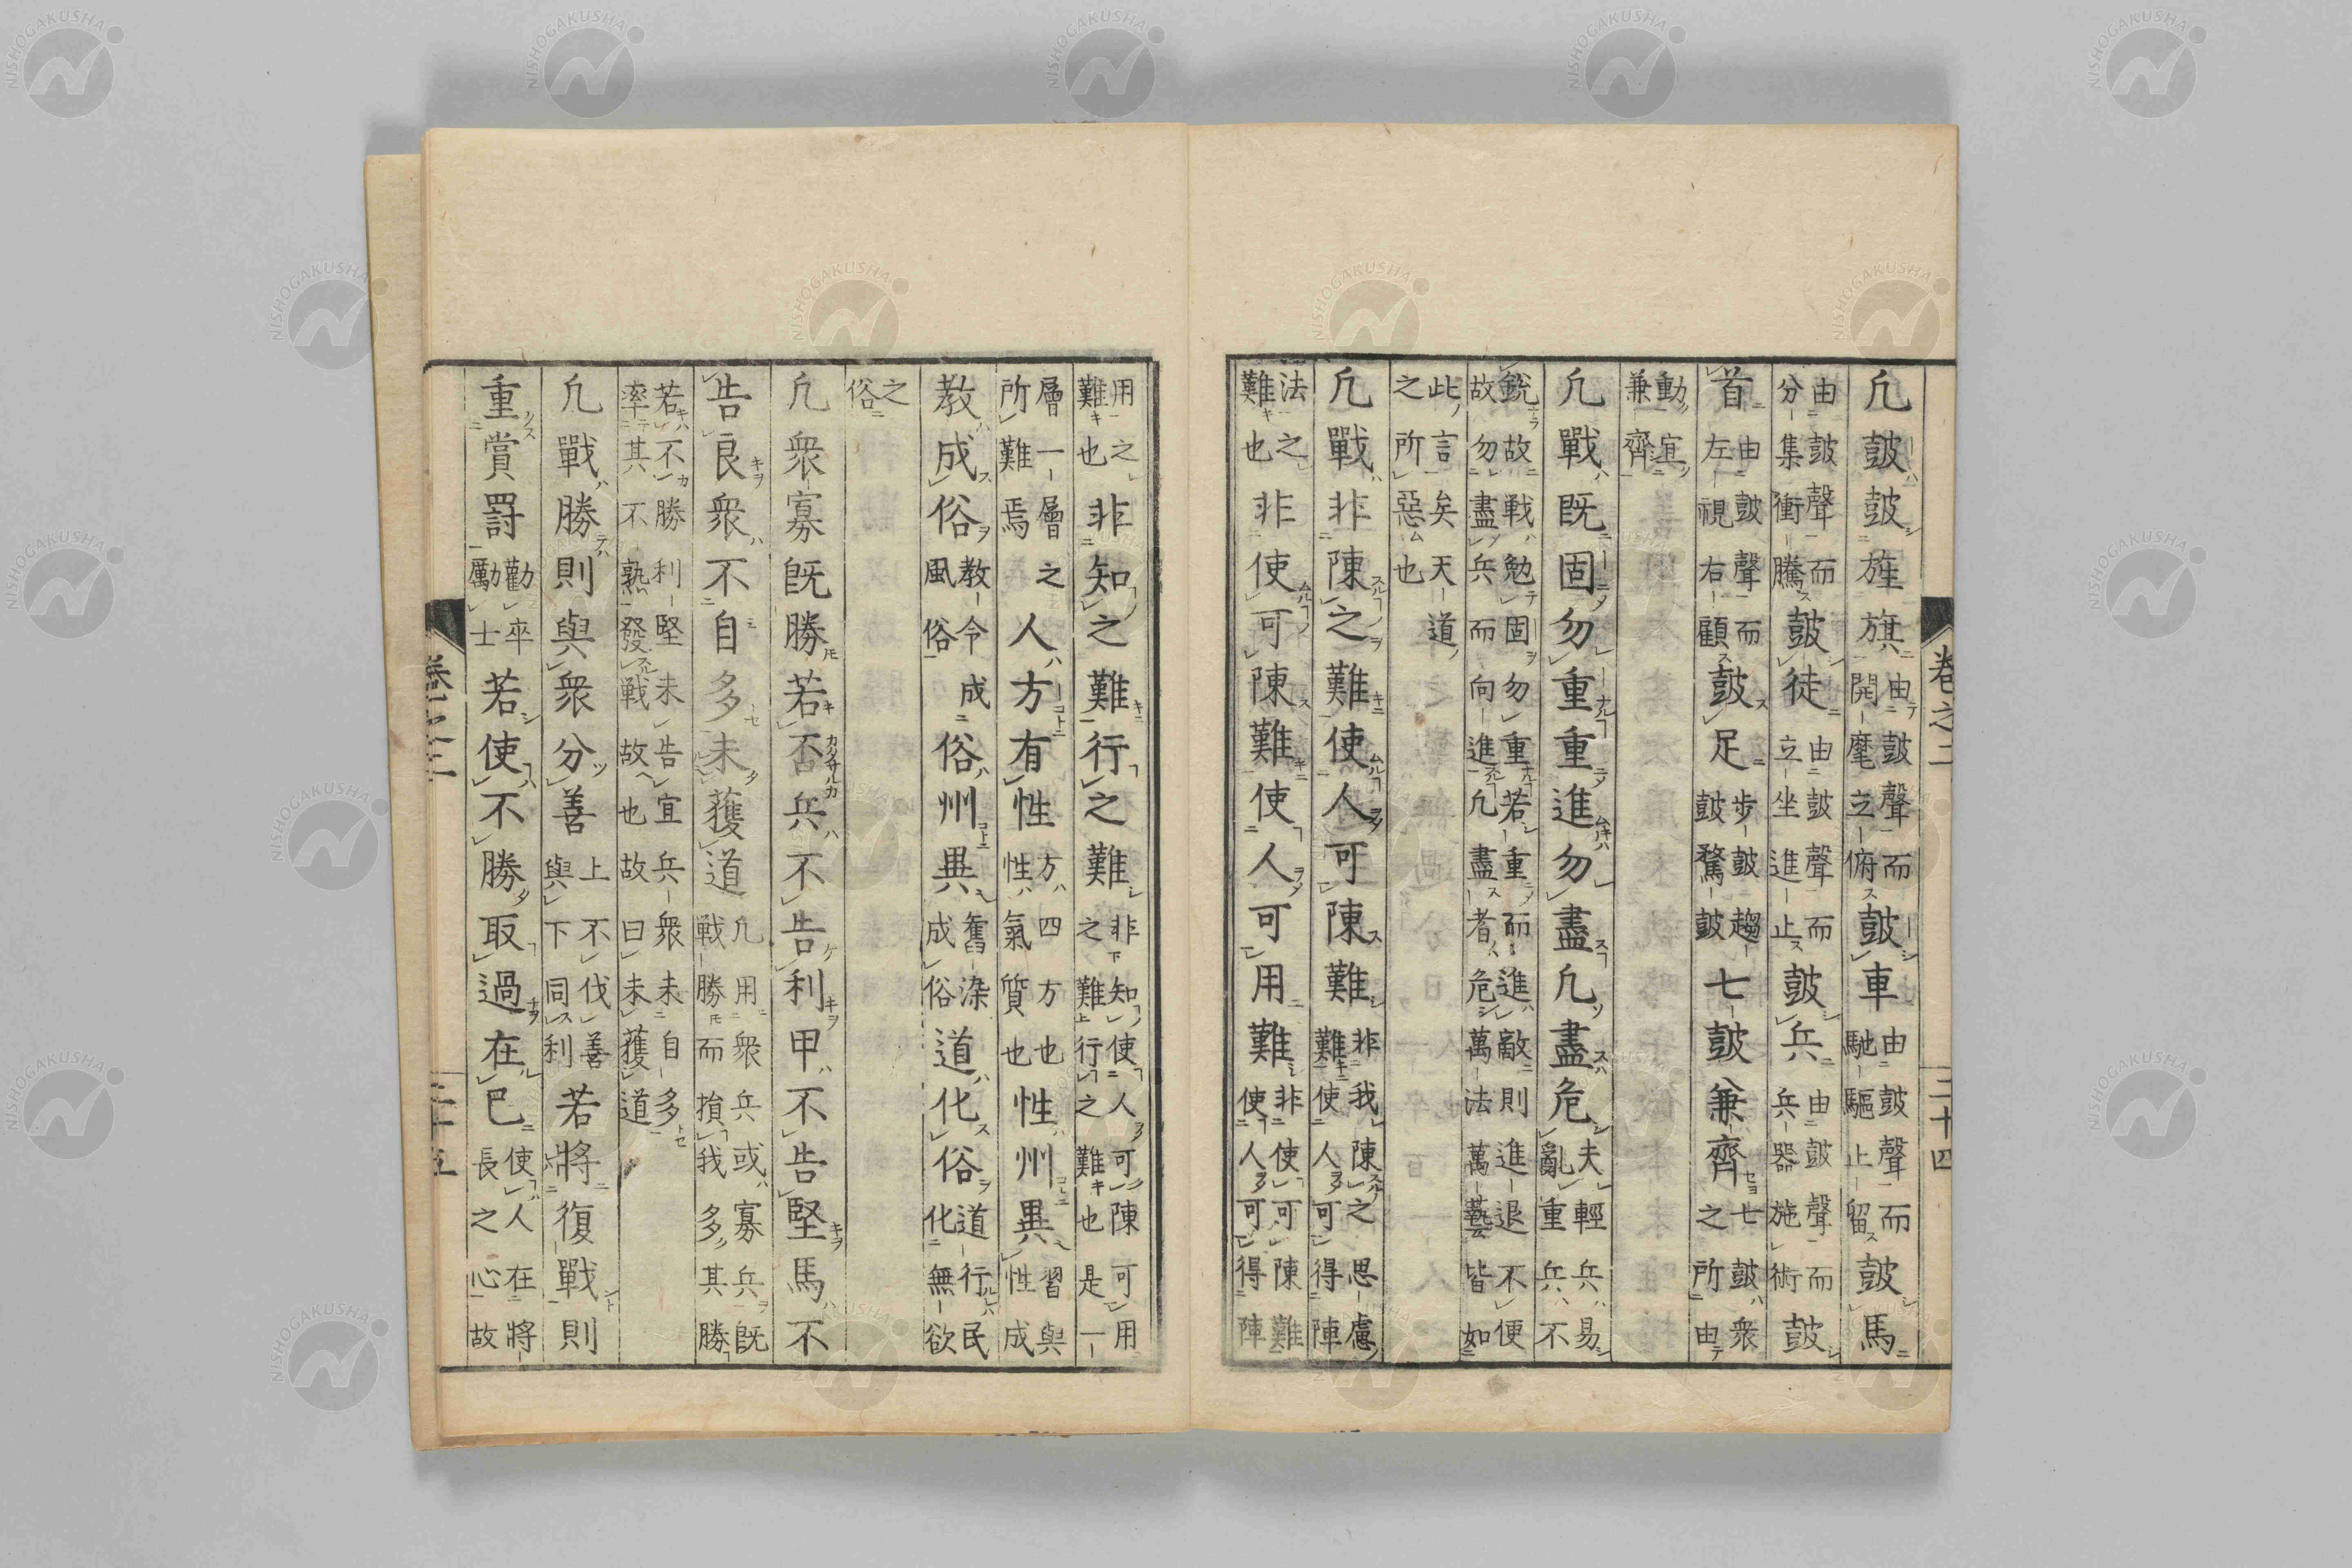 卷之二　三十四
凢鼓鼓旌旗由鼓聲而開麾立俯鼓車由鼓聲而馳驅止留鼓馬
由鼓聲而分集衝騰鼓徒由鼓聲而立坐進止鼓兵由鼓聲而兵器施術鼓
首由鼓聲而左視右顧鼓足步鼓趨鼓騖鼓七鼓兼齊七鼓衆之所由
動宜兼齊
凢戰既固勿重重進勿盡凢盡危夫輕兵易亂重兵不
銳故戦勉固勿重若重而進敵則進退不便故勿盡兵而向進凢盡者危萬法萬藝皆如
此言矣天道之所惡也
凢戰非陳之難使人可陳難非我陳之思慮難使人可得陣
法之難也非使可陳難使人可用難非使可陳難使人可得陣
用之難也非知之難行之難非知使人可陳可用之難行之難也是一
層一層之所難焉人方有性方四方也性氣質也性州異習與性成
教成俗教令成風俗俗州異舊染成俗道化俗道行民化無欲
之俗
凢衆寡既勝若否兵不告利甲不告堅馬不
告良衆不自多未獲道凢用衆兵或寡兵既戦勝而損我多其勝
若不勝利堅未告宜兵衆未自多率其不熟發戦故也故曰未獲道
凢戰勝則與衆分善上不伐善與下同利若將復戰則
重賞罰勸卒勵士若使不勝取過在已使人在將長之心故
卷之二　三十五